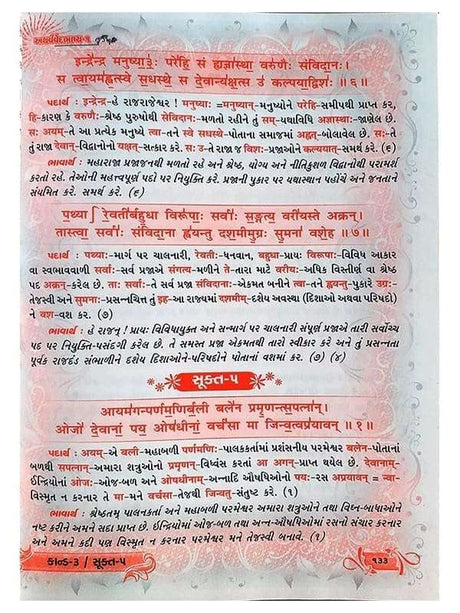 અથર્વવેદભાષ્યમ્
इन्द्रेन्द्र मनुष्या३: परेहि सं ह्यज्ञास्था वरुणैः संविदानः।
स त्वायमह्वत्स्वे सधस्थे स देवान्यक्षत्स उ कल्पयाद्विशः ॥६॥
પદાર્થ : ઇન્દ્રેન્દ્ર-હે રાજરાજેશ્વર ! મનુષ્યાઃ =મનુષ્યાન્-મનુષ્યોને પરેહિ-સમીપથી પ્રાપ્ત કર,
હિ-કારણ કે વરુણૈઃ -શ્રેષ્ઠ પુરુષોથી સંવિદાનઃ-મળતો રહીને તું સમ્-યથાવિધિ અજ્ઞાસ્થાઃ-જાણેલ છે.
સઃ અયમ્-તે આ પ્રત્યેક મનુષ્યે ત્વા-તને સ્વે સધસ્થે-પોતાના સમાજમાં અહ્વત્-બોલાવેલ છે. સઃ-તે
તું રાજા દેવાન્-વિદ્વાનોનો યક્ષત્-સત્કાર કરે. સઃ ઉ-તે રાજા જ વિશઃ-પ્રજાઓને કલ્પયાત્-સમર્થ કરે. (૬)
ભાવાર્થ : મહારાજા પ્રજાજનથી મળતો રહે અને શ્રેષ્ઠ, યોગ્ય અને નીતિકુશળ વિદ્વાનોથી પરામર્શ
કરતો રહે. તેઓની મહત્ત્વપૂર્ણ પદો પર નિયુક્તિ કરે. પ્રજાની પુકાર પર યથાસ્થાન પહોંચે અને જનતાને
સંયમિત કરે. સમર્થ કરે. (૬)
पथ्या रेवतीर्बहुधा विरूपाः सर्वाः सङ्गत्य वरीयस्ते अक्रन्।
तास्त्वा सर्वाः संविदाना ह्वयन्तु दशमीमुग्रः सुमना वशेह ॥७॥
પદાર્થ : પથ્યાઃ-માર્ગ પર ચાલનારી, રેવતીઃ-ધનવાન, બહુધા-પ્રાયઃ વિરૂપાઃ-વિવિધ આકાર
વા સ્વભાવવાળી સર્વાઃ-સર્વ પ્રજાએ સંગત્ય-મળીને તે-તારા માટે વરીયઃ-અધિક વિસ્તીર્ણ વા શ્રેષ્ઠ
પદ અક્રન્-કરેલ છે. તાઃ સર્વાઃ-તે સર્વ પ્રજા સંવિદાનાઃ-એકમત બનીને ત્વા-તને હ્વયન્તુ-પુકારે ઉગ્રઃ-
તેજસ્વી અને સુમનાઃ-પ્રસન્નચિત્ત તું ઇહ-આ રાજ્યમાં દશમીમ્-દશેય અવસ્થા (દિશાઓ અથવા પરિષદો)
ને વશ-વશ કર. (૭)
ભાવાર્થ : હે રાજન્ ! પ્રાયઃ વિવિધાયુક્ત અને સન્માર્ગ પર ચાલનારી સંપૂર્ણ પ્રજાએ તારી સર્વોચ્ચ
પદ પર નિયુક્તિ-પસંદગી કરેલ છે. તે સમસ્ત પ્રજા એકમતથી તારો સ્વીકાર કરે અને તું પ્રસન્નતા
પૂર્વક રાજદંડ સંભાળીને દશેય દિશાઓને-પરિષદોને પોતાનાં વશમાં કર. (૭) (૪)
સૂક્ત-૫
आयमगन्पर्णमणिर्बली बलेन प्रमृणन्त्सपत्नान्।
ओजो देवानां पय ओषधीनां वर्चसा मा जिन्वत्वप्रयावन् ॥१॥
પદાર્થ : અયમ્-એ બલી-મહાબળી પર્ણમણિઃ-પાલકકર્તામાં પ્રશંસનીય પરમેશ્વર બલેન-પોતાનાં
બળથી સપત્નાન્-અમારા શત્રુઓનો પ્રમૃણન્-વિધ્વંસ કરતાં આ અગન્-પ્રાપ્ત થયેલ છે. દેવાનામ્-
ઈન્દ્રિયોનાં ઓજઃ-ઓજ-બળ અને ઓષધીનામ્-અન્નાદિ ઔષધિઓનો પયઃ-રસ અપ્રયાવન્ = ન્વા-
વિસ્મૃત ન કરનાર તે મા-મને વર્ચસા-તેજથી જિન્વતુ-સંતુષ્ટ કરે. (૧)
ભાવાર્થ : શ્રેષ્ઠતમ્ પાલનકર્તા અને મહાબળી પરમેશ્વર અમારા શત્રુઓને તથા વિઘ્ન-બાધાઓને
નષ્ટ કરીને અમને સદા પ્રાપ્ત છે. ઈન્દ્રિયોમાં ઓજ-બળ તથા અન્ન-ઔષધિઓમાં રસનો સંચાર કરનાર
અને અમને કદી પણ વિસ્મૃત ન કરનાર પરમેશ્વર મને તેજસ્વી બનાવે. (૧)
કાન્ડ-૩ / સૂક્ત-૫
૧૩૩